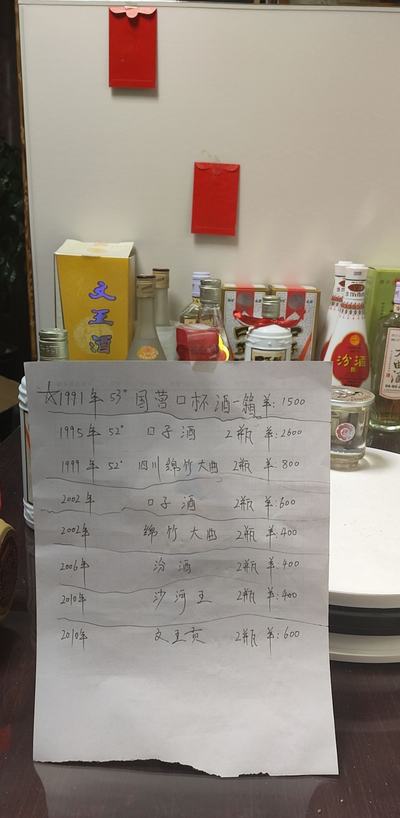 文王酒
汾酒
☆1991年 53° 国营口杯酒一箱 羊:1500
1995年 52° 口子酒 2瓶 羊:2600
1999年 52° 四川绵竹大曲 2瓶 羊:800
2002年 口子酒 2瓶 羊:600
2002年 绵竹大曲 2瓶 羊:400
2006年 汾酒 2瓶 羊:400
2010年 沙河王 2瓶 羊:400
2010年 文王贡 2瓶 羊:600